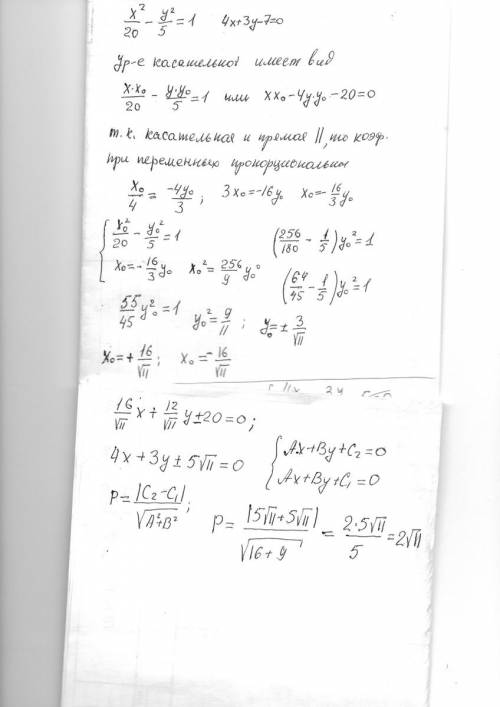 x²/20 - y²/5 = 1 4x+3y-7=0
Ур-е касательной имеет вид
x·x₀/20 - y·y₀/5 = 1 или xx₀-4y·y₀-20=0
т.к. касательная и прямая ||, то коэф.
при переменных пропорциональны
x₀/4 = -4y₀/3; 3x₀=-16y₀ x₀=-16/3 y₀
{ x₀²/20 - y₀²/5 = 1 (256/180 - 1/5)y₀²=1
x₀=-16/3 y₀ x₀²=256/9 y₀² (64/45 - 1/5)y₀²=1
55/45 y₀²=1 y₀²=9/11; y₀=± 3/√11
x₀=+ 16/√11; x₀=- 16/√11
16/√11 x + 12/√11 y ± 20=0;
4x+3y±5√11=0 { Ax+By+C₂=0
Ax+By+C₁=0
P= |C₂-C₁|/√(A²+B²); P= |5√11+5√11|/√(16+9) = 2·5√11/5 = 2√11